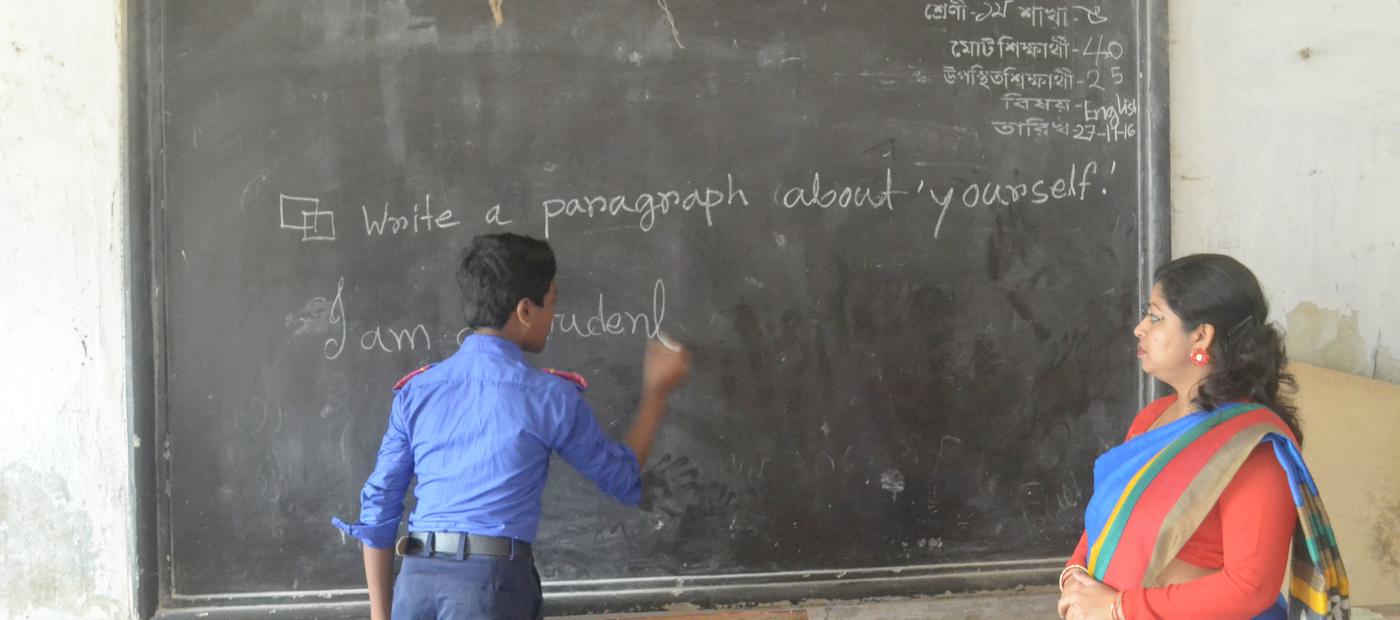 শ্রেণী-৯ম শাখা-
মোট শিক্ষার্থী-40
উপস্থিত শিক্ষার্থী-25
বিষয়-English
তারিখ 27-11-16
Write a paragraph about 'yourself.'
I am a student